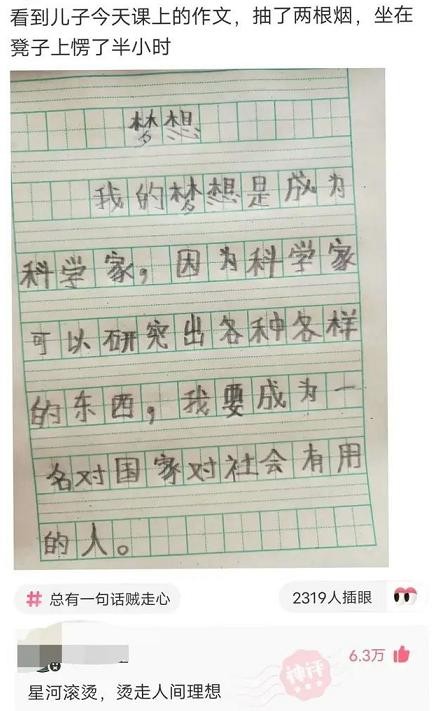 看到儿子今天课上的作文，抽了两根烟，坐在
凳子上愣了半小时
梦想
我的梦想是成为
科学家，因为科学家
可以研究出各种各样
的东西，我要成为一
名对国家对社会有用
的人。
# 总有一句话贼走心
2319人插眼
6.3万
神评
星河滚烫，烫走人间理想